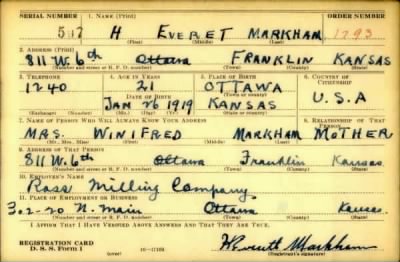 SERIAL NUMBER 1. NAME (Print) ORDER NUMBER
H EVERET MARKHAM 1293
(First) (Middle) (Last)
2. ADDRESS (Print)
811 W. 6th Ottawa FRANKLIN KANSAS
(Number and street or R. F. D. number) (Town) (County) (State)
3. TELEPHONE 4. AGE IN YEARS 5. PLACE OF BIRTH 6. COUNTRY OF CITIZENSHIP
1240 21 OTTAWA
DATE OF BIRTH
JAN 26 1919 KANSAS U.S.A
(Exchange) (Number) (Mo.) (Day) (Yr.) (State or country)
7. NAME OF PERSON WHO WILL ALWAYS KNOW YOUR ADDRESS 8. RELATIONSHIP OF THAT PERSON
MRS. WINIFRED MARKHAM MOTHER
(Mr., Mrs., Miss) (First) (Middle) (Last)
9. ADDRESS OF THAT PERSON
811 W. 6th Ottawa Franklin Kansas
(Number and street or R. F. D. number) (Town) (County) (State)
10. EMPLOYER'S NAME
Ross Milling Company
11. PLACE OF EMPLOYMENT OR BUSINESS
302-20 N. Main Ottawa Kansas
(Number and street or R. F. D. number) (Town) (County) (State)
I AFFIRM THAT I HAVE VERIFIED ABOVE ANSWERS AND THAT THEY ARE TRUE.
REGISTRATION CARD
D. S. S. Form 1 16-17105 H Everett Markham